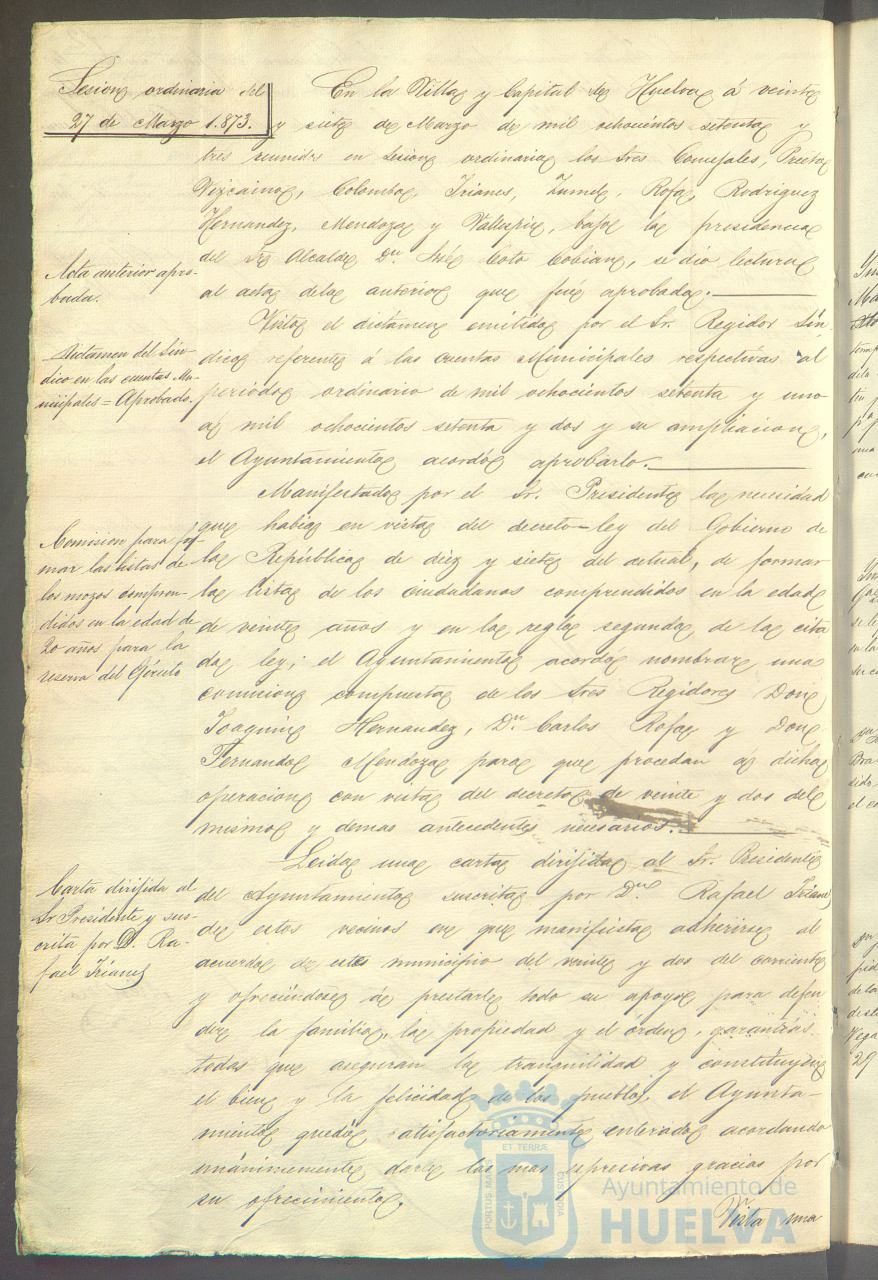 Sesion ordinaria del
27 de Marzo 1.873.
En la Villa y Capital de Huelva á veinte
y siete de Marzo de mil ochocientos setenta y
tres reunidos en sesion ordinaria los Sres Concejales, Prieto
Vizcaino, Colombo, Trianes, Zumel, Rofa, Rodriguez
Hernandez, Mendoza y bajo la presidencia
del Sr Alcalde Dn José Coto Cobian, se dió lectura
al acta de la anterior que fué aprobada.
Acta anterior apro-
bada.
Visto el dictamen emitido por el Sr. Regidor Sín-
dico referente á las cuentas Municipales respectivas al
periodo ordinario de mil ochocientos setenta y uno
á mil ochocientos setenta y dos y su ampliacion,
el Ayuntamiento acordó aprobarlo.
Dictamen del Sín-
dico en las cuentas Mu-
nicipales = Aprobado.
Manifestado por el Sr. Presidente la necesidad
que habia en virtud del decreto-ley del Gobierno de
la República de diez y siete del actual, de formar
la lista de los ciudadanos comprendidos en la edad
de veinte años y en la regla segunda de la cita
da ley; el Ayuntamiento acordó nombrar una
comision compuesta de los Sres Regidores Don
Joaquin Hernandez, Dn Carlos Rofa y Don
Fernando Mendoza para que procedan á dicha
operacion con vista del decreto de veinte y dos del
mismo y demas antecedentes necesarios.
Comision para for-
mar las listas de
los mozos compren-
didos en la edad de
20 años para la
reserva del Ejército
Leida una carta dirijida al Sr. Presidente
del Ayuntamiento suscrita por Dn Rafael Trianes
de esta vecinos en que manifiesta adherirse al
acuerdo de este municipio del veinte y dos del corriente
y ofreciendose á prestarle todo su apoyo para defen
der la familia, la propiedad y el órden, garantías
todas que aseguran la tranquilidad y constituyen
el bien y la felicidad de los pueblos, el Ayunta-
miento quedó satisfactoriamente enterado acordando
unánimemente darle las mas espresivas gracias por
su ofrecimiento.
Carta dirijida al
Sr Presidente y sus-
crita por D. Ra-
fael Trianes
Vista una
PORTUS MARIS ET TERRÆ CUSTODIA
Ayuntamiento de
HUELVA